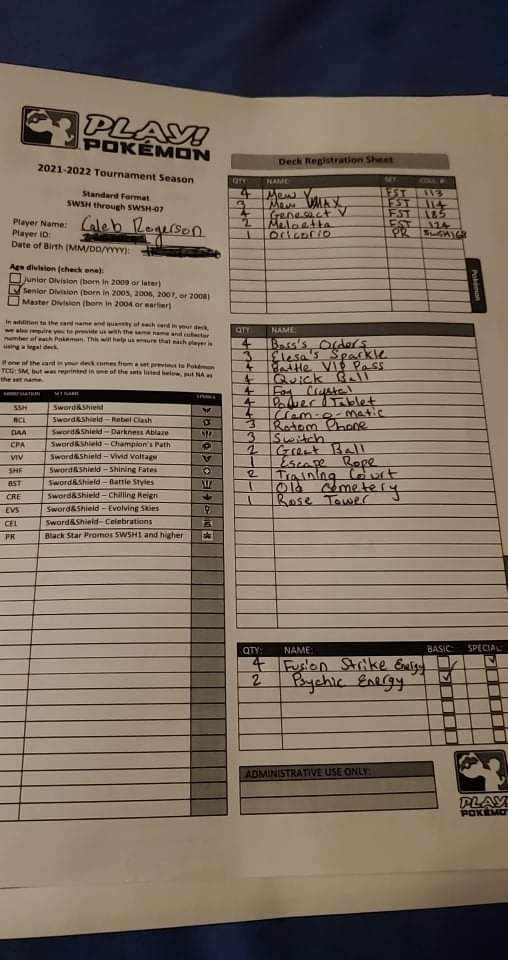 PLAY!
POKÉMON
2021-2022 Tournament Season
Standard Format
SWSH through SWSH-07
Player Name: Caleb Rogerson
Player ID:
Date of Birth (MM/DD/YYYY):
Age division (check one):
Junior Division (born in 2009 or later)
Senior Division (born in 2005, 2006, 2007, or 2008)
Master Division (born in 2004 or earlier)
In addition to the card name and quantity of each card in your deck,
we also require you to provide us with the same name and collector
number of each Pokémon. This will help us ensure that each player is
using a legal deck.
If one of the card in your deck comes from a set previous to Pokémon
TCG: SM, but was reprinted in one of the sets listed below, put NA as
the set name.
ABBREVIATION SET NAME SYMBOL
SSH Sword&Shield
RCL Sword&Shield – Rebel Clash
DAA Sword&Shield – Darkness Ablaze
CPA Sword&Shield – Champion's Path
VIV Sword&Shield – Vivid Voltage
SHF Sword&Shield – Shining Fates
BST Sword&Shield – Battle Styles
CRE Sword&Shield – Chilling Reign
EVS Sword&Shield – Evolving Skies
CEL Sword&Shield – Celebrations
PR Black Star Promos SWSH1 and higher
Deck Registration Sheet
QTY: NAME: SET: COLL. #
4 Mew V FST 113
3 Mew VMAX FST 114
4 Genesect V FST 185
2 Meloetta FST 124
1 Oricorio PR
Pokémon
QTY: NAME:
4 Boss's Orders
3 Elesa's Sparkle
4 Battle VIP Pass
4 Quick Ball
4 Fog Crystal
4 Power Tablet
4 Cram-o-matic
3 Rotom Phone
3 Switch
2 Great Ball
1 Escape Rope
2 Training Court
1 Old Cemetery
1 Rose Tower
QTY: NAME: BASIC: SPECIAL:
4 Fusion Strike Energy
2 Psychic Energy
ADMINISTRATIVE USE ONLY:
PLAY!
POKÉMO